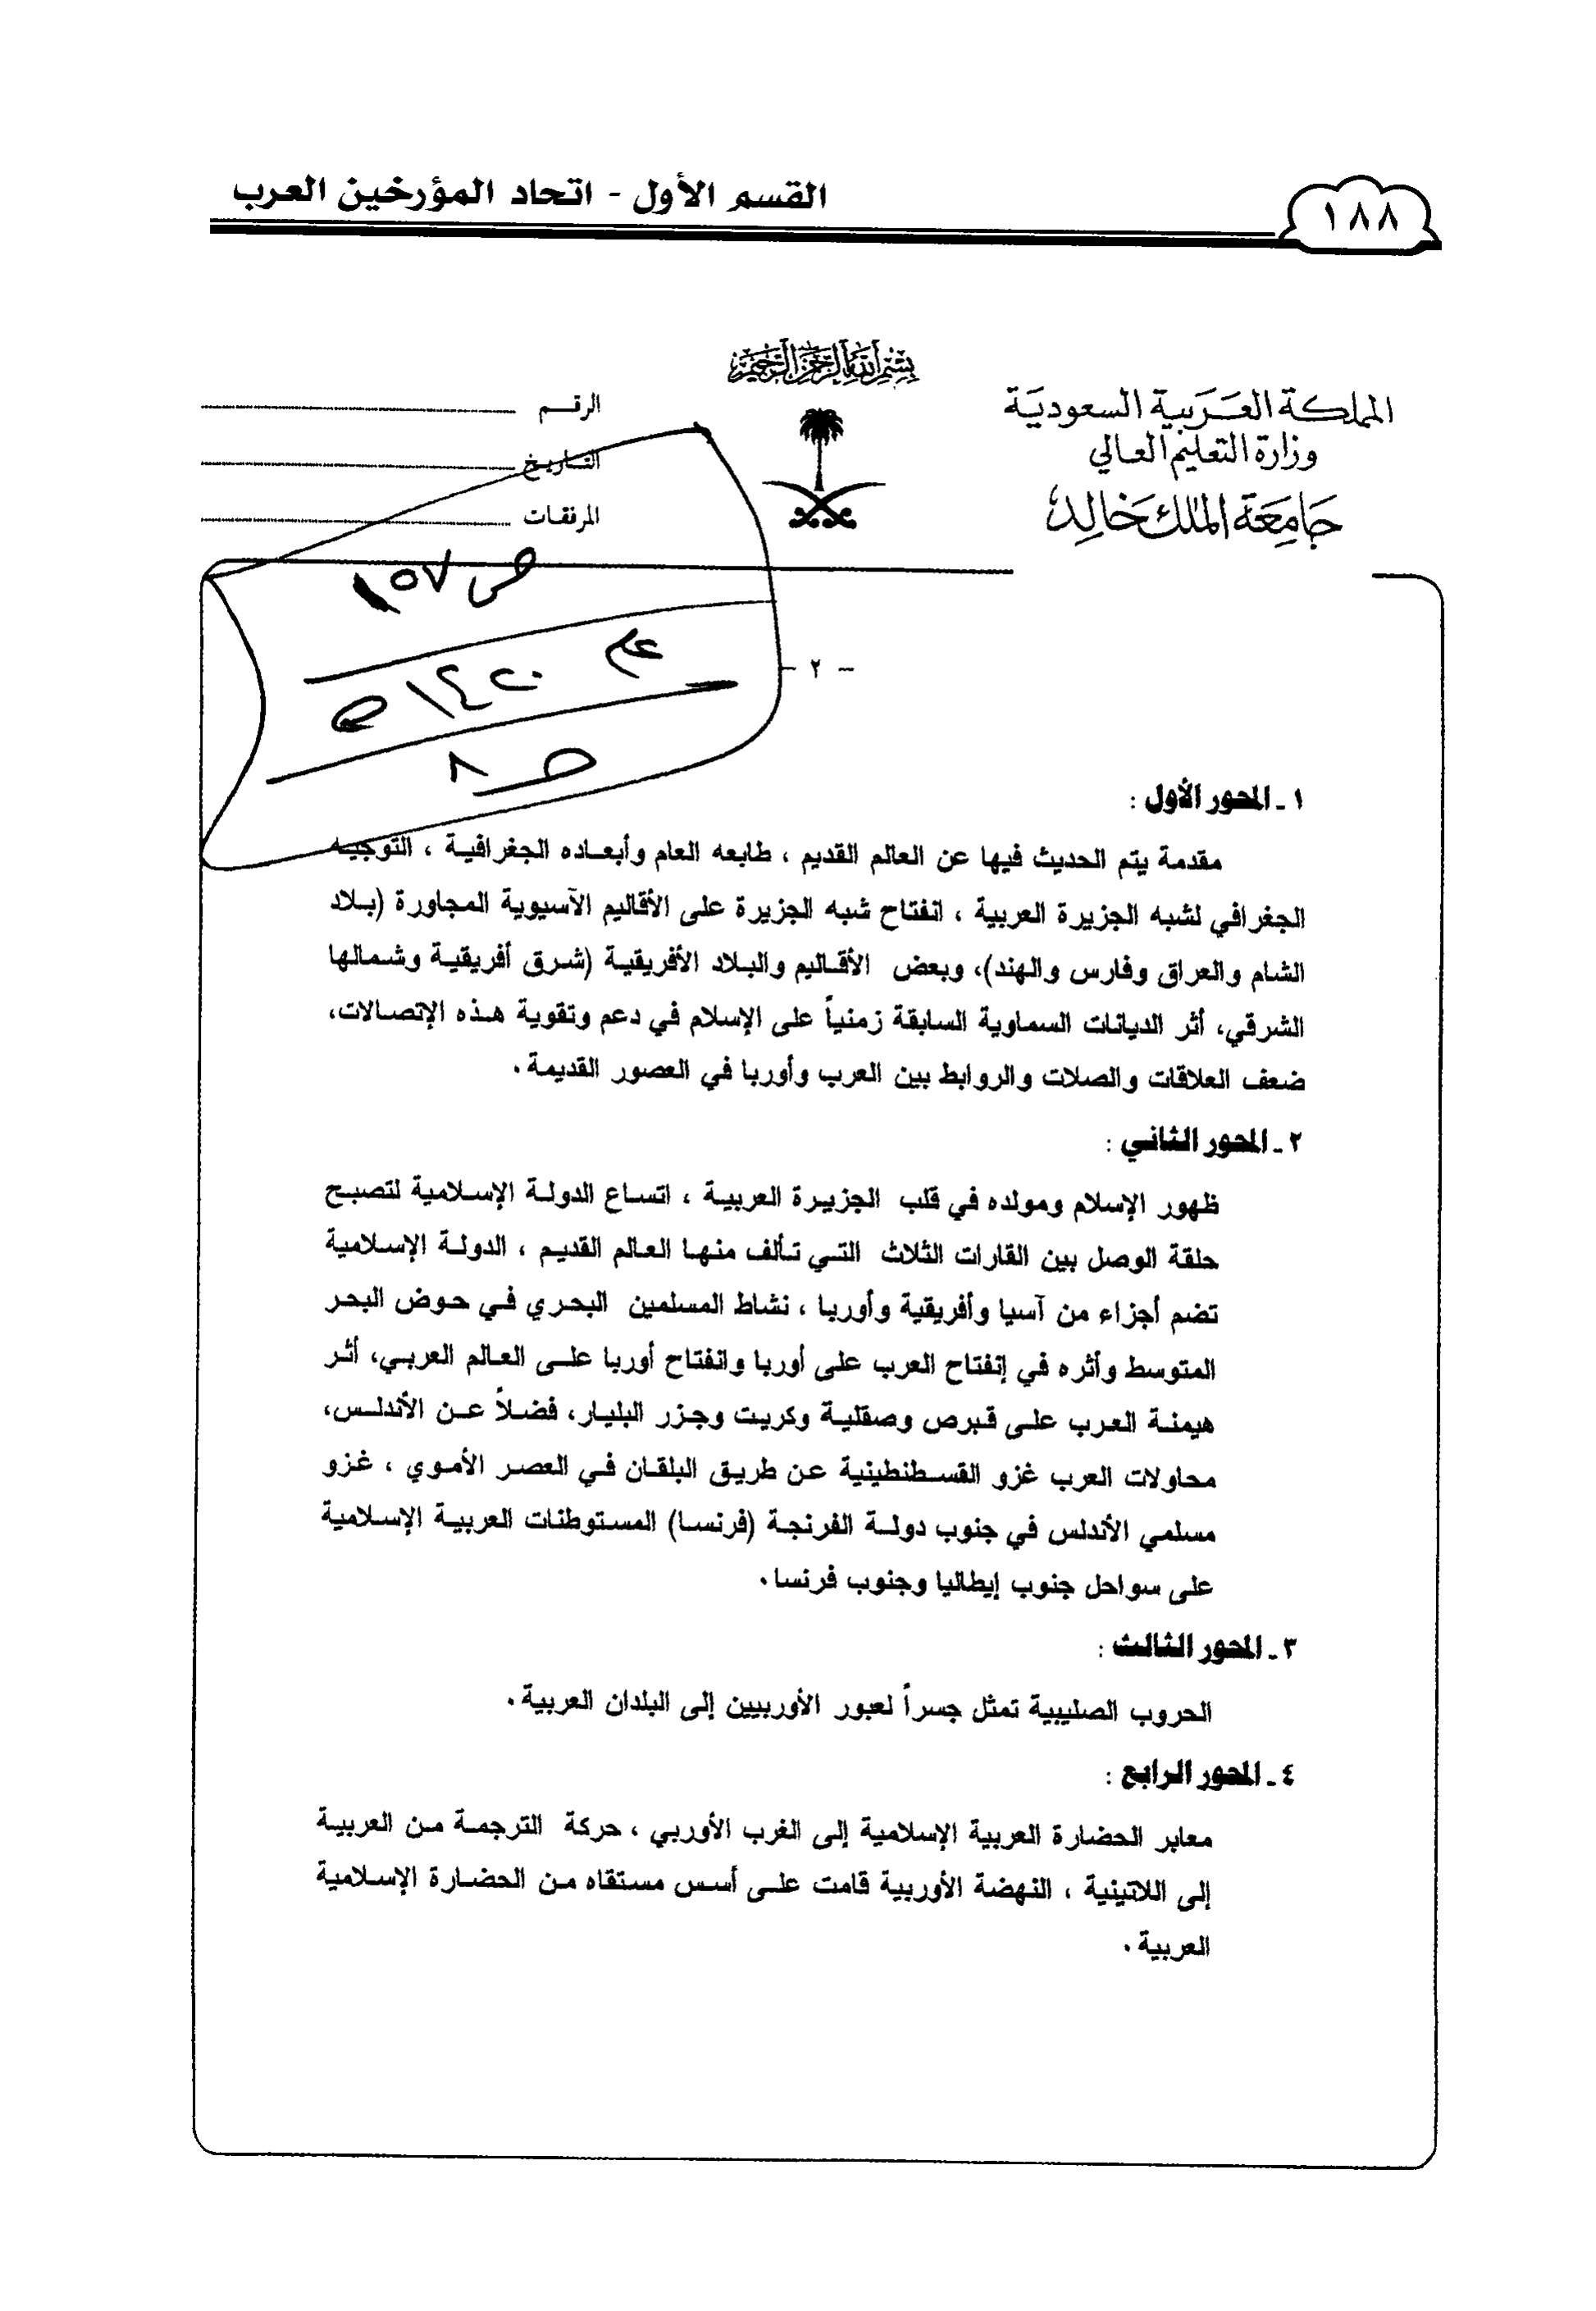 ١٨٨
القسم الأول - اتحاد المؤرخين العرب
بسم الله الرحمن الرحيم
المملكة العربية السعودية
وزارة التعليم العالي
جامعة الملك خالد
الرقـــم
التـاريـخ
المرفقـات
ص ١٥٧
عام ١٤٢٠هـ
صـ ٨
- ٢ -
١ - المحور الأول :
مقدمة يتم الحديث فيها عن العالم القديم ، طابعه العام وأبعاده الجغرافية ، التوجيه
الجغرافي لشبه الجزيرة العربية ، انفتاح شبه الجزيرة على الأقاليم الآسيوية المجاورة (بلاد
الشام والعراق وفارس والهند)، وبعض الأقاليم والبلاد الأفريقية (شرق أفريقية وشمالها
الشرقي، أثر الديانات السماوية السابقة زمنياً على الإسلام في دعم وتقوية هذه الإتصالات،
ضعف العلاقات والصلات والروابط بين العرب وأوربا في العصور القديمة.
٢ - المحور الثاني :
ظهور الإسلام ومولده في قلب الجزيرة العربية ، اتساع الدولة الإسلامية لتصبح
حلقة الوصل بين القارات الثلاث التي تتألف منها العالم القديم ، الدولة الإسلامية
تضم أجزاء من آسيا وأفريقية وأوربا ، نشاط المسلمين البحري في حوض البحر
المتوسط وأثره في إنفتاح العرب على أوربا وانفتاح أوربا على العالم العربي، أثر
هيمنة العرب على قبرص وصقلية وكريت وجزر البليار، فضلاً عن الأندلس،
محاولات العرب غزو القسطنطينية عن طريق البلقان في العصر الأموي ، غزو
مسلمي الأندلس في جنوب دولة الفرنجة (فرنسا) المستوطنات العربية الإسلامية
على سواحل جنوب إيطاليا وجنوب فرنسا.
٣ - المحور الثالث :
الحروب الصليبية تمثل جسراً لعبور الأوربيين إلى البلدان العربية.
٤ - المحور الرابع :
معابر الحضارة العربية الإسلامية إلى الغرب الأوربي ، حركة الترجمة من العربية
إلى اللاتينية ، النهضة الأوربية قامت على أسس مستقاه من الحضارة الإسلامية
العربية .